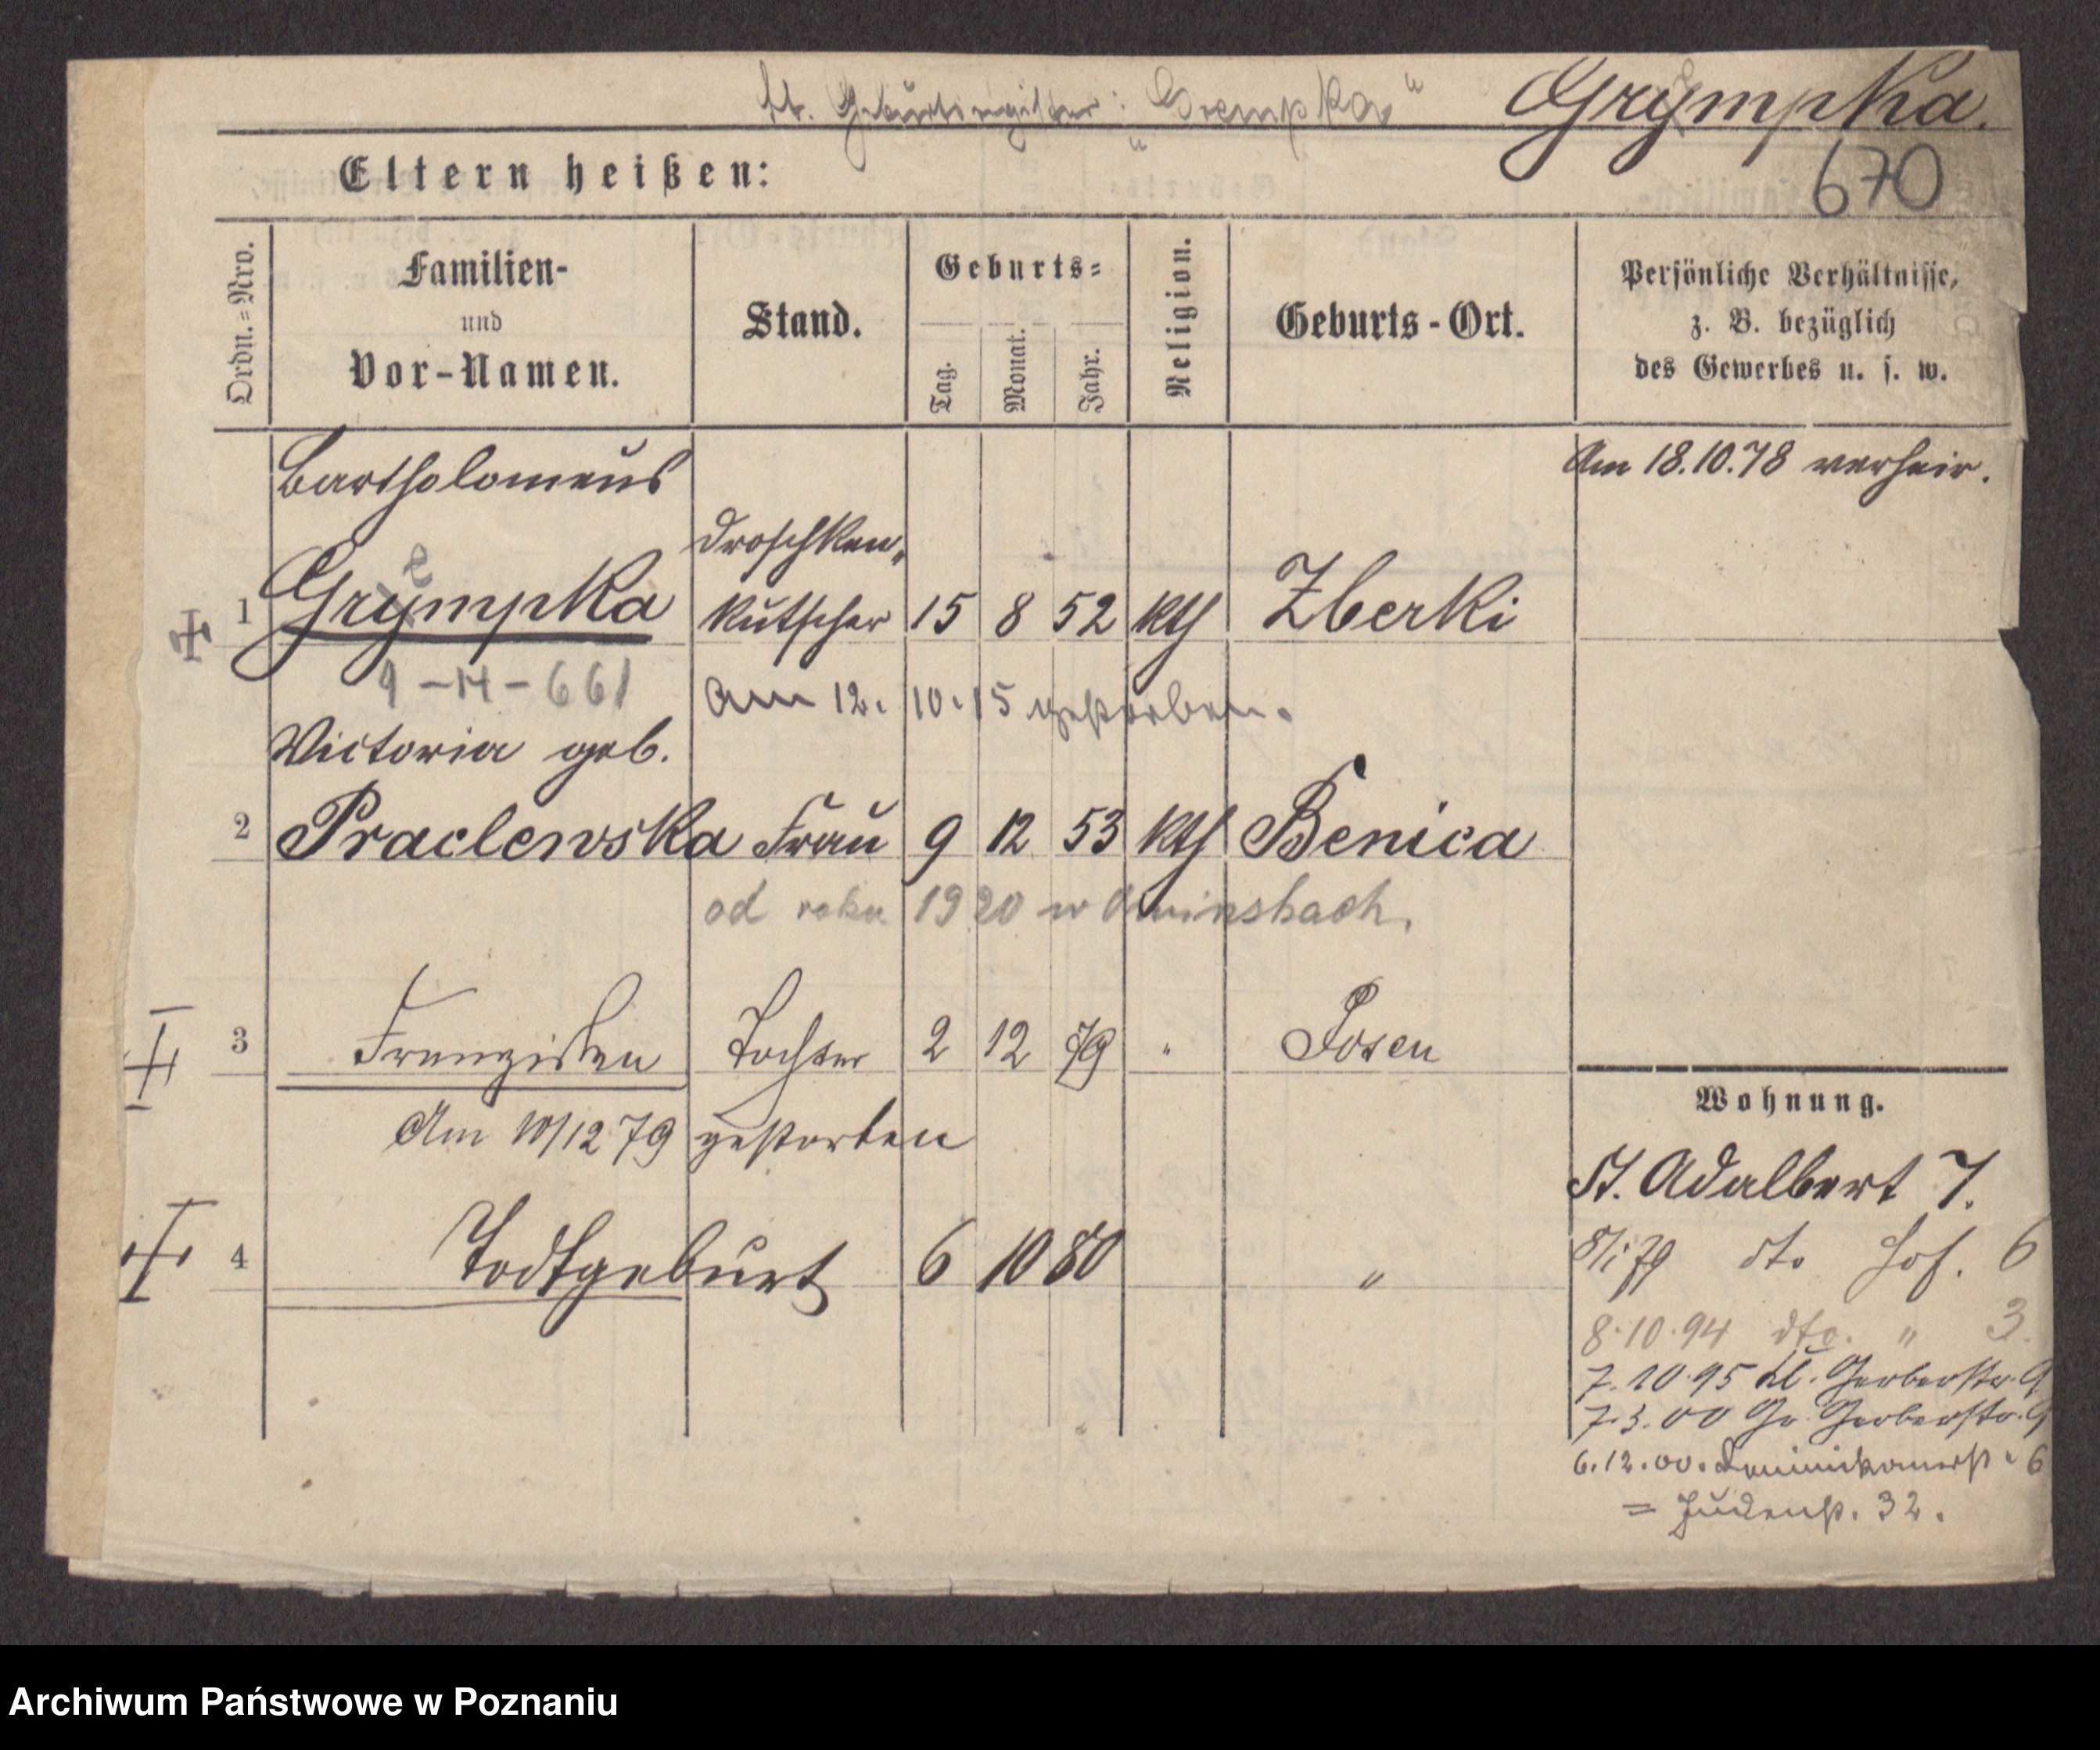 lt. Geburtsregister: "Grempka"
Grympka.
670
Eltern heißen:
Ordn.=Nro.
Familien-
und
Vor-Namen.
Stand.
Geburts=
Tag.
Monat.
Jahr.
Religion.
Geburts-Ort.
Persönliche Verhältnisse,
z. B. bezüglich
des Gewerbes u. s. w.
Am 18.10.78 verheir.
Bartholomeus
Droschken-
e
1 Grympka kutscher 15 8 52 kth Zberki
Am 12. 10. 15 gestorben.
Victoria geb.
2 Praclewska Frau 9 12 53 kth Benica
od roku 1920 w
3 Franziska Tochter 2 12 79 " Posen
Am 10/12 79 gestorben
4 Todtgeburt 6 10 80 "
Wohnung.
St. Adalbert 7.
79 dto Hof. 6
8.10.94 dto. " 3.
7.10.95 Kl. Gerberstr. 9
7.3.00 Gr. Gerberstr. 9
6.12.00. Dominikanerst. 6
= Judenst. 32.
Archiwum Państwowe w Poznaniu